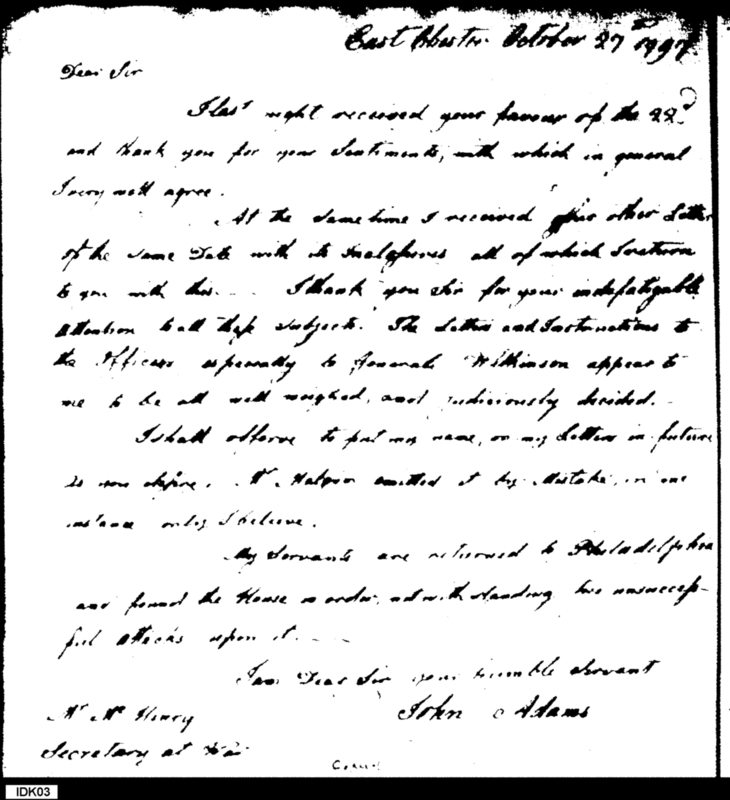 East Chester October 27th 1797
Dear Sir
I last night received your favour of the 22d
and thank you for your Sentiments, with which in general
I very well agree.
At the same time I received your other Letter
of the same Date with its Inclosures all of which I return
to you with this. I thank you Sir for your indefatigable
Attention to all these subjects. The Letters and Instructions to
the Officers especially to General Wilkinson appear to
me to be all well weighed, and judiciously decided.
I shall observe to put my name, on my Letters in future
as you desire. Mr Malcom omitted it by Mistake, in one
instance only I believe.
My Servants are returned to Philadelphia
and found the House in order, notwithstanding two unsuccess-
ful Attacks upon it.
I am Dear Sir your humble Servant
John Adams
Mr Mc Henry
Secretary at War
IDK03